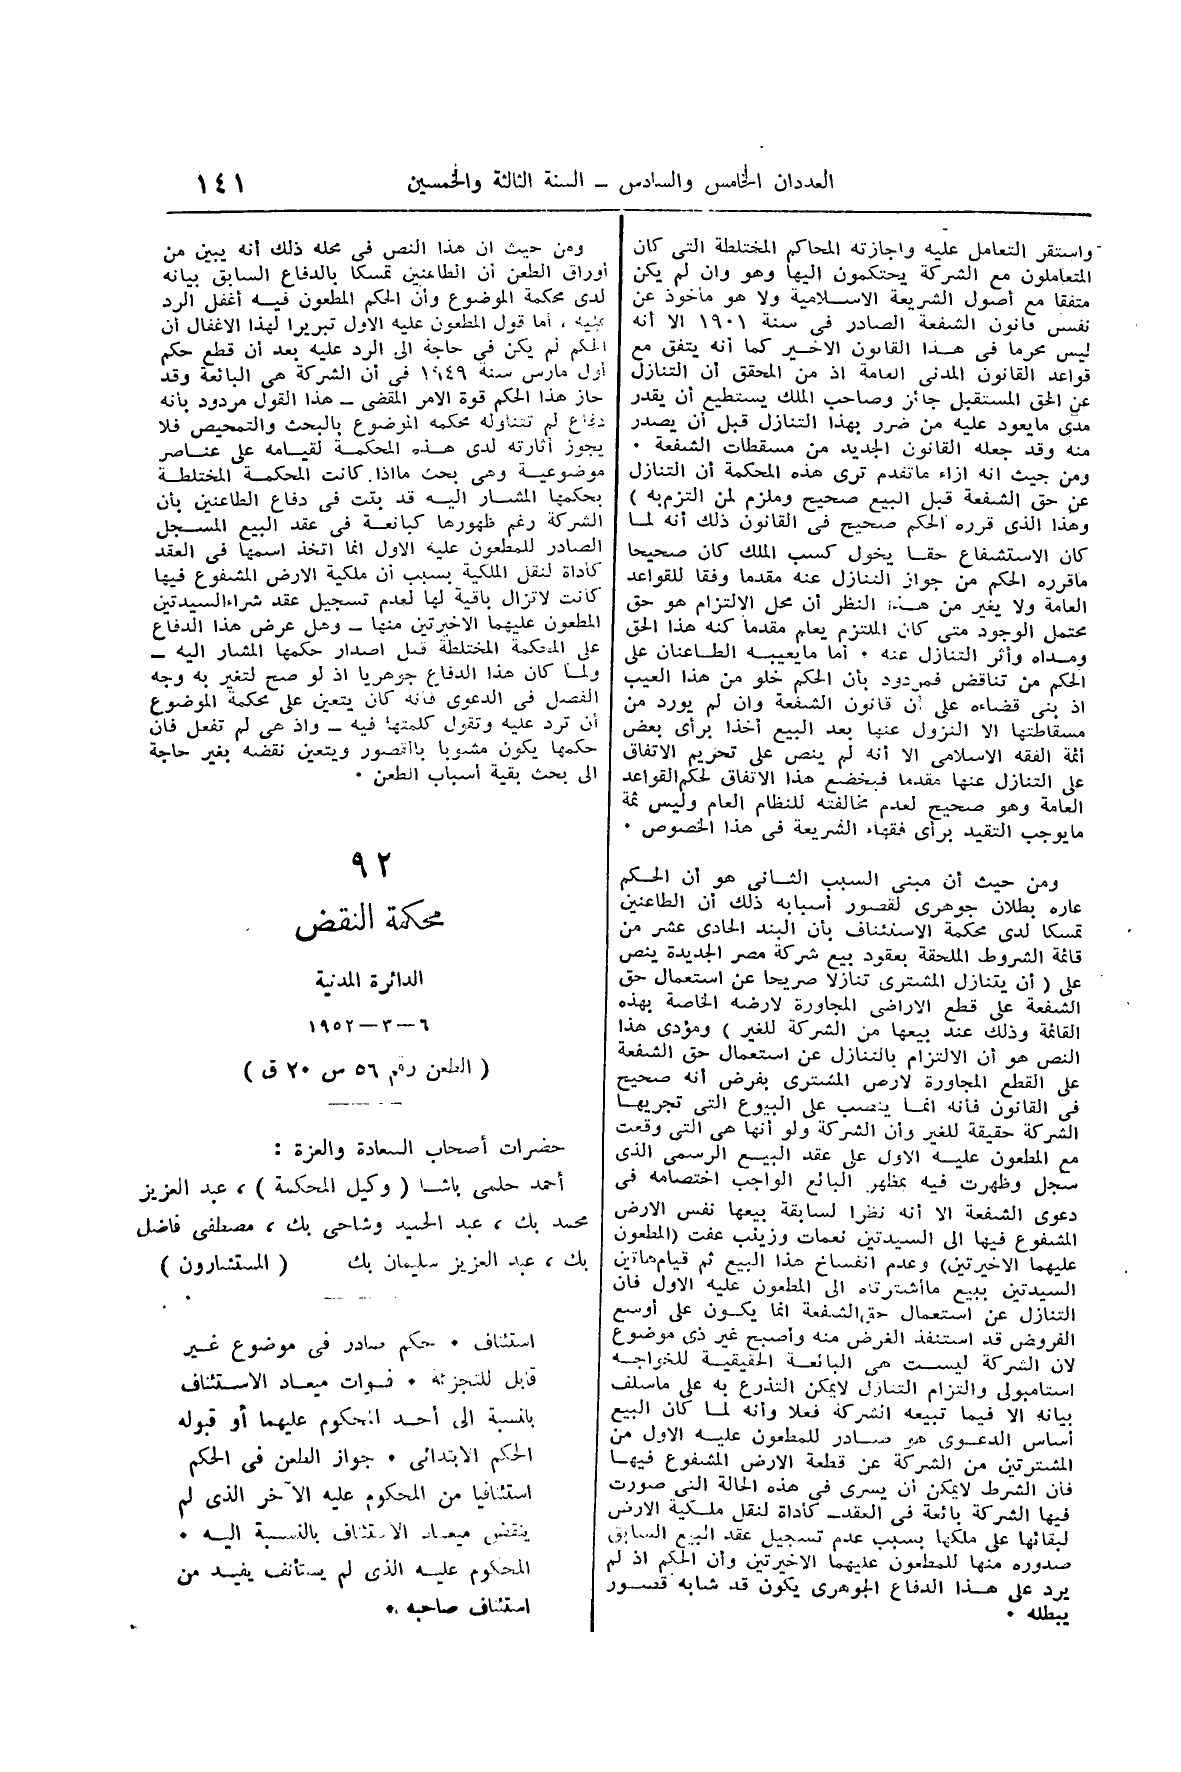 العددان الخامس والسادس — السنة الثالثة والخمسين
١٤١
واستقر التعامل عليه واجازته المحاكم المختلطة التى كان
المتعاملون مع الشركة يحتكمون اليها وهو وان لم يكن
متفقا مع أصول الشريعة الاسلامية ولا هو مأخوذ عن
نفس قانون الشفعة الصادر فى سنة ١٩٠١ الا أنه
ليس محرما فى هذا القانون الاخير كما أنه يتفق مع
قواعد القانون المدنى العامة اذ من المحقق أن التنازل
عن الحق المستقبل جائز وصاحب الملك يستطيع أن يقدر
مدى مايعود عليه من ضرر بهذا التنازل قبل أن يصدر
منه وقد جعله القانون الجديد من مسقطات الشفعة •
ومن حيث انه ازاء ماتقدم ترى هذه المحكمة أن التنازل
عن حق الشفعة قبل البيع صحيح وملزم لمن التزم به )
وهذا الذى قرره الحكم صحيح فى القانون ذلك أنه لما
كان الاستشفاع حقا يخول كسب الملك كان صحيحا
ماقرره الحكم من جواز التنازل عنه مقدما وفقا للقواعد
العامة ولا يغير من هذا النظر أن محل الالتزام هو حق
محتمل الوجود متى كان الملتزم يعلم مقدما كنه هذا الحق
ومداه وأثر التنازل عنه • أما مايعيبه الطاعنان على
الحكم من تناقض فمردود بأن الحكم خلو من هذا العيب
اذ بنى قضاءه على أن قانون الشفعة وان لم يورد من
مسقاطتها الا النزول عنها بعد البيع أخذا برأى بعض
أئمة الفقه الاسلامى الا أنه لم ينص على تحريم الاتفاق
على التنازل عنها مقدما فيخضع هذا الاتفاق لحكم القواعد
العامة وهو صحيح لعدم مخالفته للنظام العام وليس ثمة
مايوجب التقيد برأى فقهاء الشريعة فى هذا الخصوص •
ومن حيث أن مبنى السبب الثانى هو أن الحكم
عاره بطلان جوهرى لقصور أسبابه ذلك أن الطاعنين
تمسكا لدى محكمة الاستئناف بأن البند الحادى عشر من
قائمة الشروط الملحقة بعقود بيع شركة مصر الجديدة ينص
على ( أن يتنازل المشترى تنازلا صريحا عن استعمال حق
الشفعة على قطع الاراضى المجاورة لارضه الخاصة بهذه
القائمة وذلك عند بيعها من الشركة للغير ) ومؤدى هذا
النص هو أن الالتزام بالتنازل عن استعمال حق الشفعة
على القطع المجاورة لارض المشترى بفرض أنه صحيح
فى القانون فأنه انما ينصب على البيوع التى تجريها
الشركة حقيقة للغير وأن الشركة ولو أنها هى التى وقعت
مع المطعون عليه الاول على عقد البيع الرسمى الذى
سجل وظهرت فيه بمظهر البائع الواجب اختصامه فى
دعوى الشفعة الا أنه نظرا لسابقة بيعها نفس الارض
المشفوع فيها الى السيدتين نعمات وزينب عفت (المطعون
عليهما الاخيرتين) وعدم انفساخ هذا البيع ثم قيام هاتين
السيدتين ببيع مااشترتاه الى المطعون عليه الاول فان
التنازل عن استعمال حق الشفعة انما يكون على أوسع
الفروض قد استنفذ الغرض منه وأصبح غير ذى موضوع
لان الشركة ليست هى البائعة الحقيقية للخواجه
استامبولى والتزام التنازل لايمكن التذرع به على ماسلف
بيانه الا فيما تبيعه الشركة فعلا وأنه لما كان البيع
أساس الدعوى هو صادر للمطعون عليه الاول من
المشترتين من الشركة عن قطعة الارض المشفوع فيها
فأن الشرط لايمكن أن يسرى فى هذه الحالة التى صورت
فيها الشركة بائعة فى العقد كأداة لنقل ملكية الارض
لبقائها على ملكها بسبب عدم تسجيل عقد البيع السابق
صدوره منها للمطعون عليهما الاخيرتين وأن الحكم اذ لم
يرد على هذا الدفاع الجوهرى يكون قد شابه قصور
يبطله •
ومن حيث ان هذا النص فى محله ذلك أنه يبين من
أوراق الطعن أن الطاعنين تمسكا بالدفاع السابق بيانه
لدى محكمة الموضوع وأن الحكم المطعون فيه أغفل الرد
عليه ، أما قول المطعون عليه الاول تبريرا لهذا الاغفال أن
الحكم لم يكن فى حاجة الى الرد عليه بعد أن قطع حكم
أول مارس سنة ١٩٤٩ فى أن الشركة هى البائعة وقد
حاز هذا الحكم قوة الامر المقضى — هذا القول مردود بأنه
دفاع لم تتناوله محكمة الموضوع بالبحث والتمحيص فلا
يجوز أثارته لدى هذه المحكمة لقيامه على عناصر
موضوعية وهى بحث مااذا كانت المحكمة المختلطة
بحكمها المشار اليه قد بتت فى دفاع الطاعنين بأن
الشركة رغم ظهورها كبائعة فى عقد البيع المسجل
الصادر للمطعون عليه الاول انما اتخذ اسمها فى العقد
كأداة لنقل الملكية بسبب أن ملكية الارض المشفوع فيها
كانت لاتزال باقية لها لعدم تسجيل عقد شراء السيدتين
المطعون عليهما الاخيرتين منها — وهل عرض هذا الدفاع
على المحكمة المختلطة قبل اصدار حكمها المشار اليه —
ولما كان هذا الدفاع جوهريا اذ لو صح لتغير به وجه
الفصل فى الدعوى فأنه كان يتعين على محكمة الموضوع
أن ترد عليه وتقول كلمتها فيه — واذ هى لم تفعل فان
حكمها يكون مشوبا بالقصور ويتعين نقضه بغير حاجة
الى بحث بقية أسباب الطعن •
٩٢
محكمة النقض
الدائرة المدنية
٦—٣—١٩٥٢
( الطعن رقم ٥٦ س ٢٠ ق )
حضرات أصحاب السعادة والعزة :
أحمد حلمى باشا ( وكيل المحكمة ) ، عبد العزيز
محمد بك ، عبد الحميد وشاحى بك ، مصطفى فاضل
بك ، عبد العزيز سليمان بك ( المستشارون )
استئناف • حكم صادر فى موضوع غير
قابل للتجزئة • فوات ميعاد الاستئناف
بالنسبة الى أحد المحكوم عليهما أو قبوله
الحكم الابتدائى • جواز الطعن فى الحكم
استئنافيا من المحكوم عليه الآخر الذى لم
ينقض ميعاد الاستئناف بالنسبة اليه •
المحكوم عليه الذى لم يستأنف يفيد من
استئناف صاحبه •